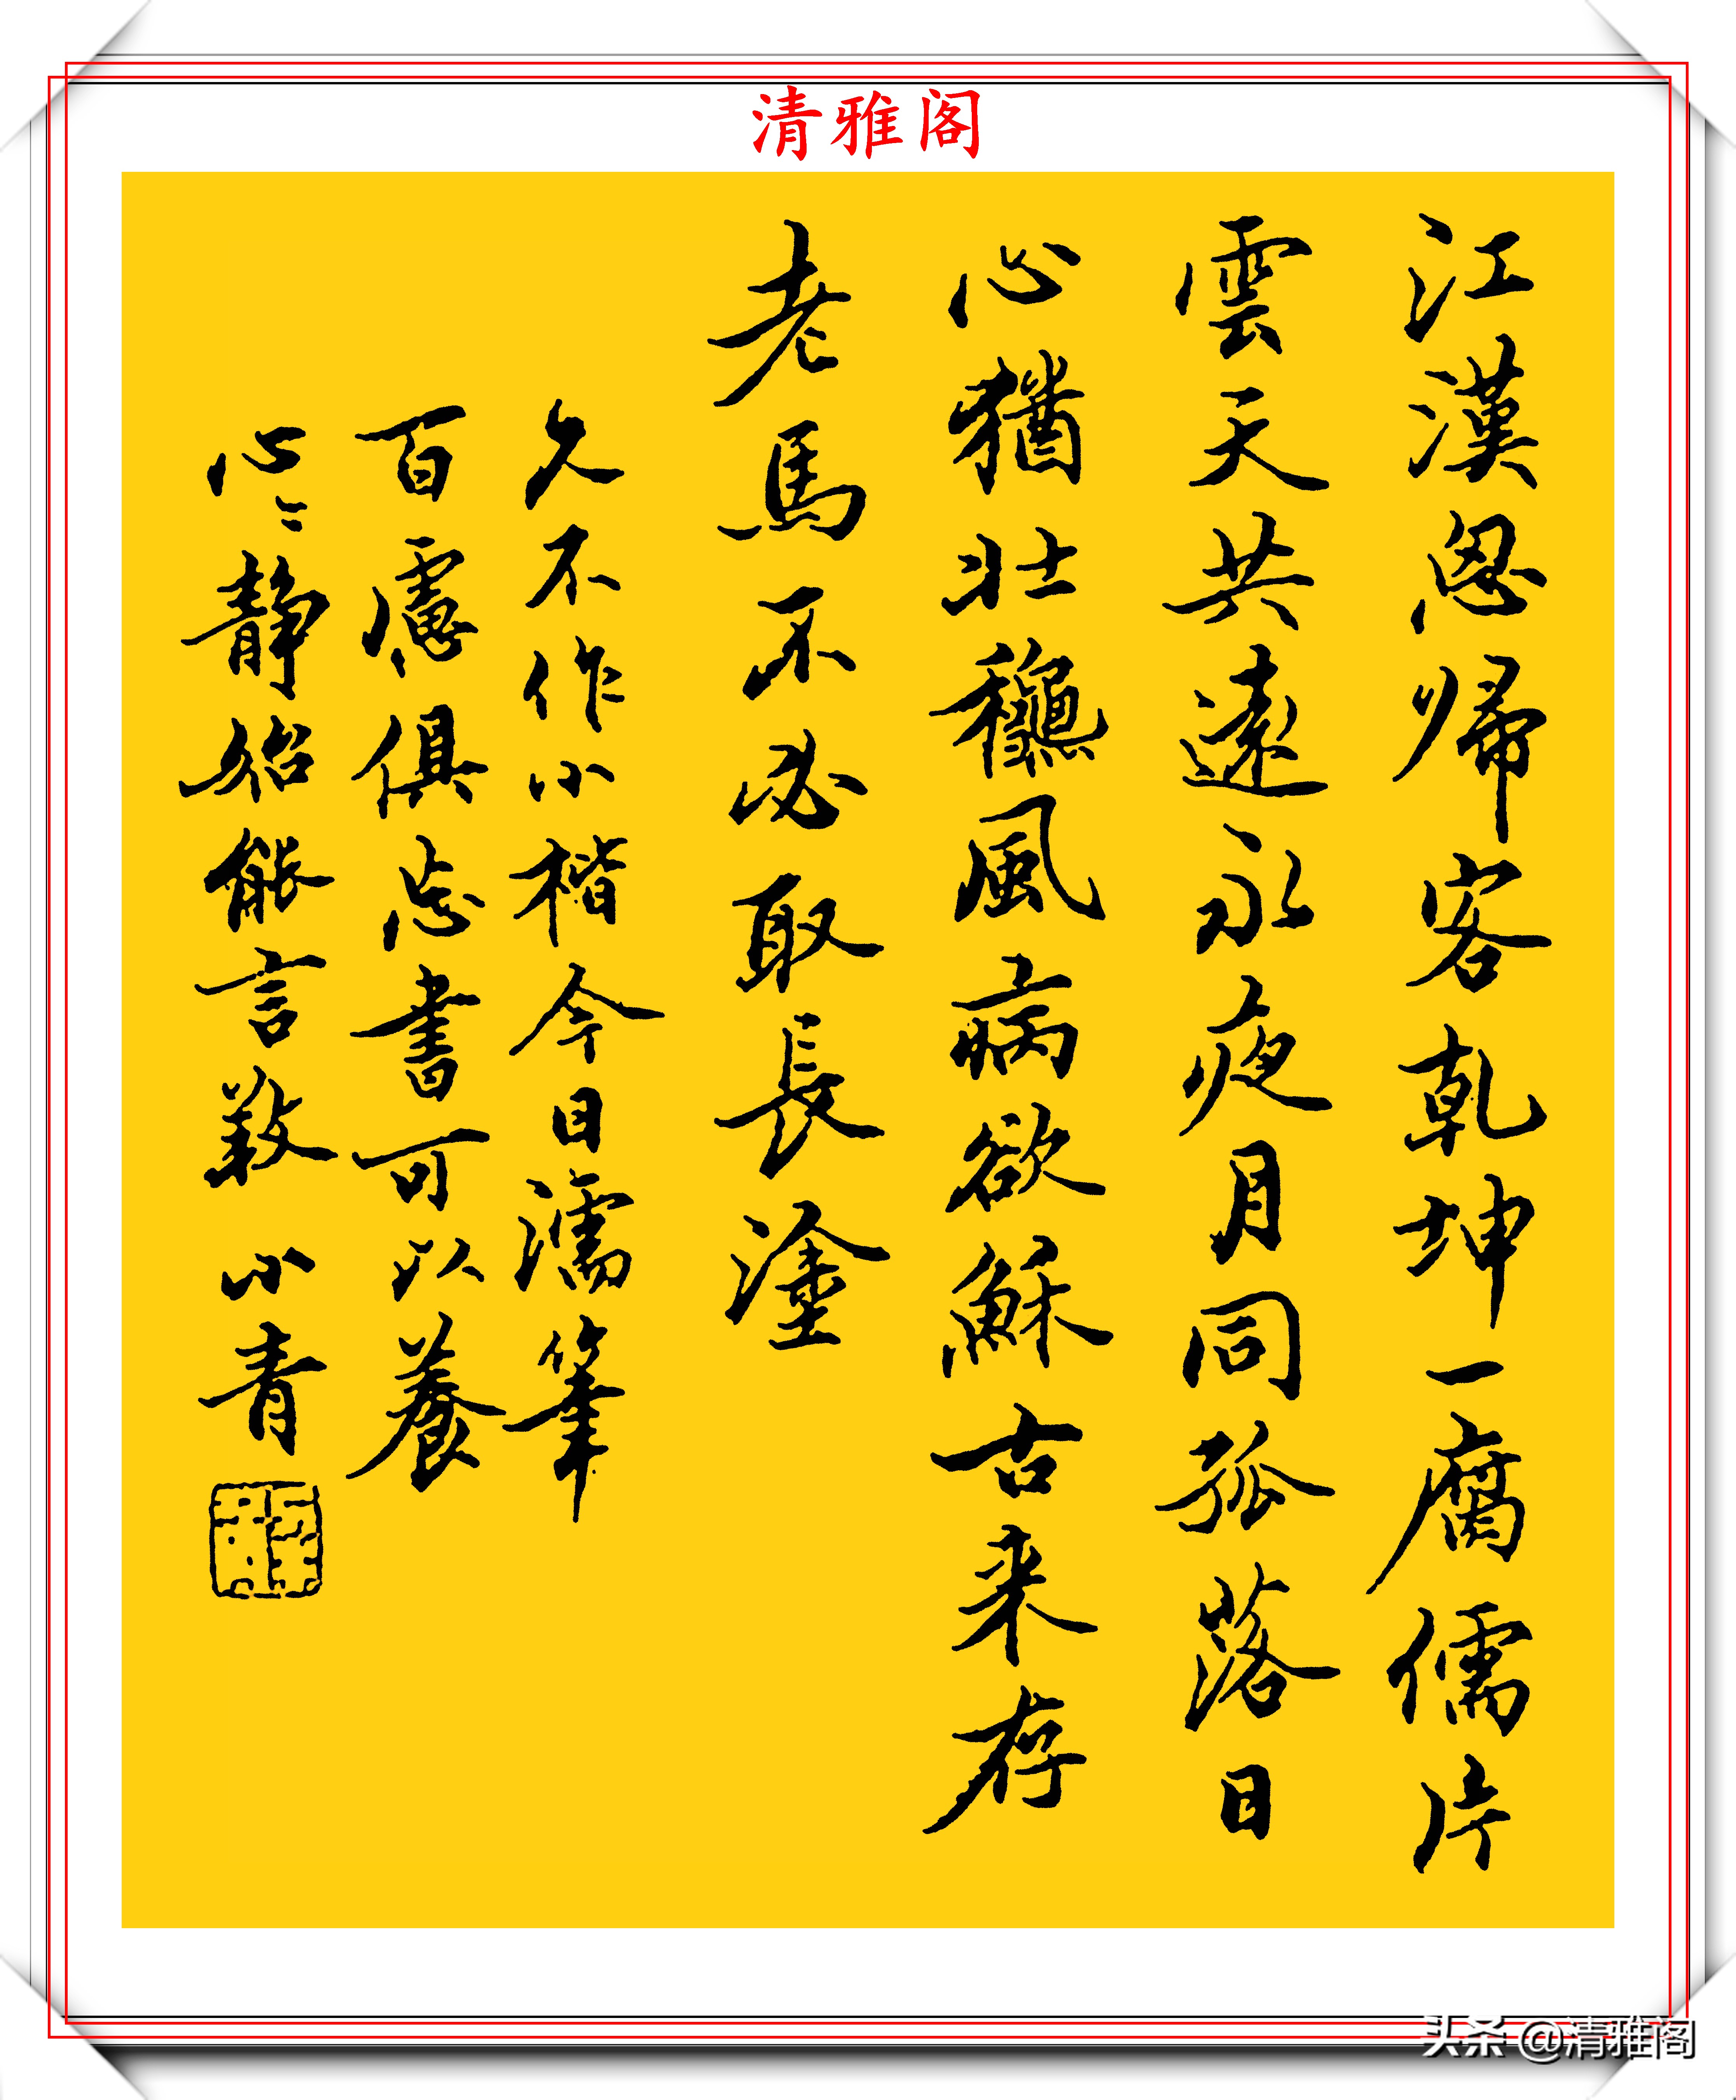 清雅阁
江漢思歸客乾坤一腐儒片
雲天共遠永夜月同孤落日
心猶壯龝風病欲穌古来存
老馬不必取長塗
久不作小楷今日濡筆
百慮俱忘書可以養
心〻静始能言 小青
头条 @清雅阁